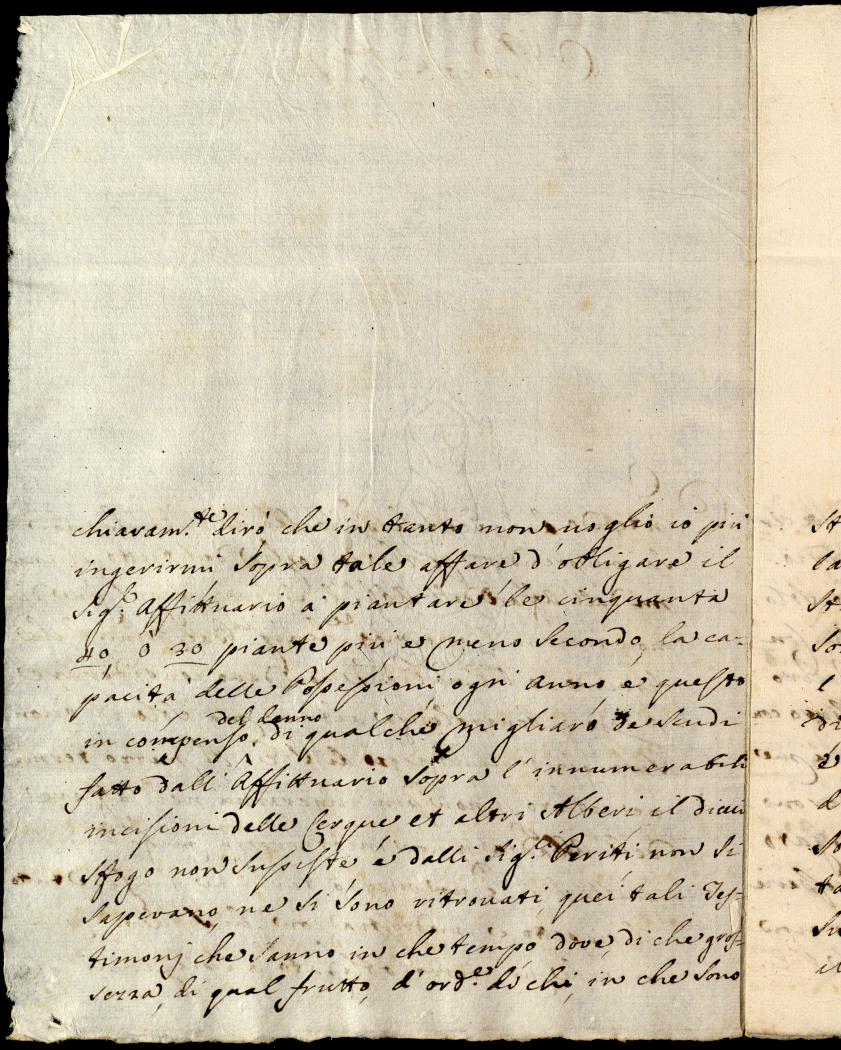 chiaram.te dirò che in tanto non uoglio io più
ingerirmi sopra tale affare d'obligare il
Sig.e Affittuario à piantare le cinquanta
40, ò 30 piante più e meno secondo la ca-
pacità delle Possessioni ogni anno e questo
del danno
in compenso di qualche migliaro de scudi
fatto dall'Affittuario sopra l'innumerabili
incisioni delle Cerque et altri Alberi il di cui
sfogo non susiste è dalli Sig.i Periti non si
sapevano, ne si sono ritrouati quei tali Tes-
timonj che sanno in che tempo, dove, di che gros-
sezza, di qual frutto, d'ord.e di chi, in che sono